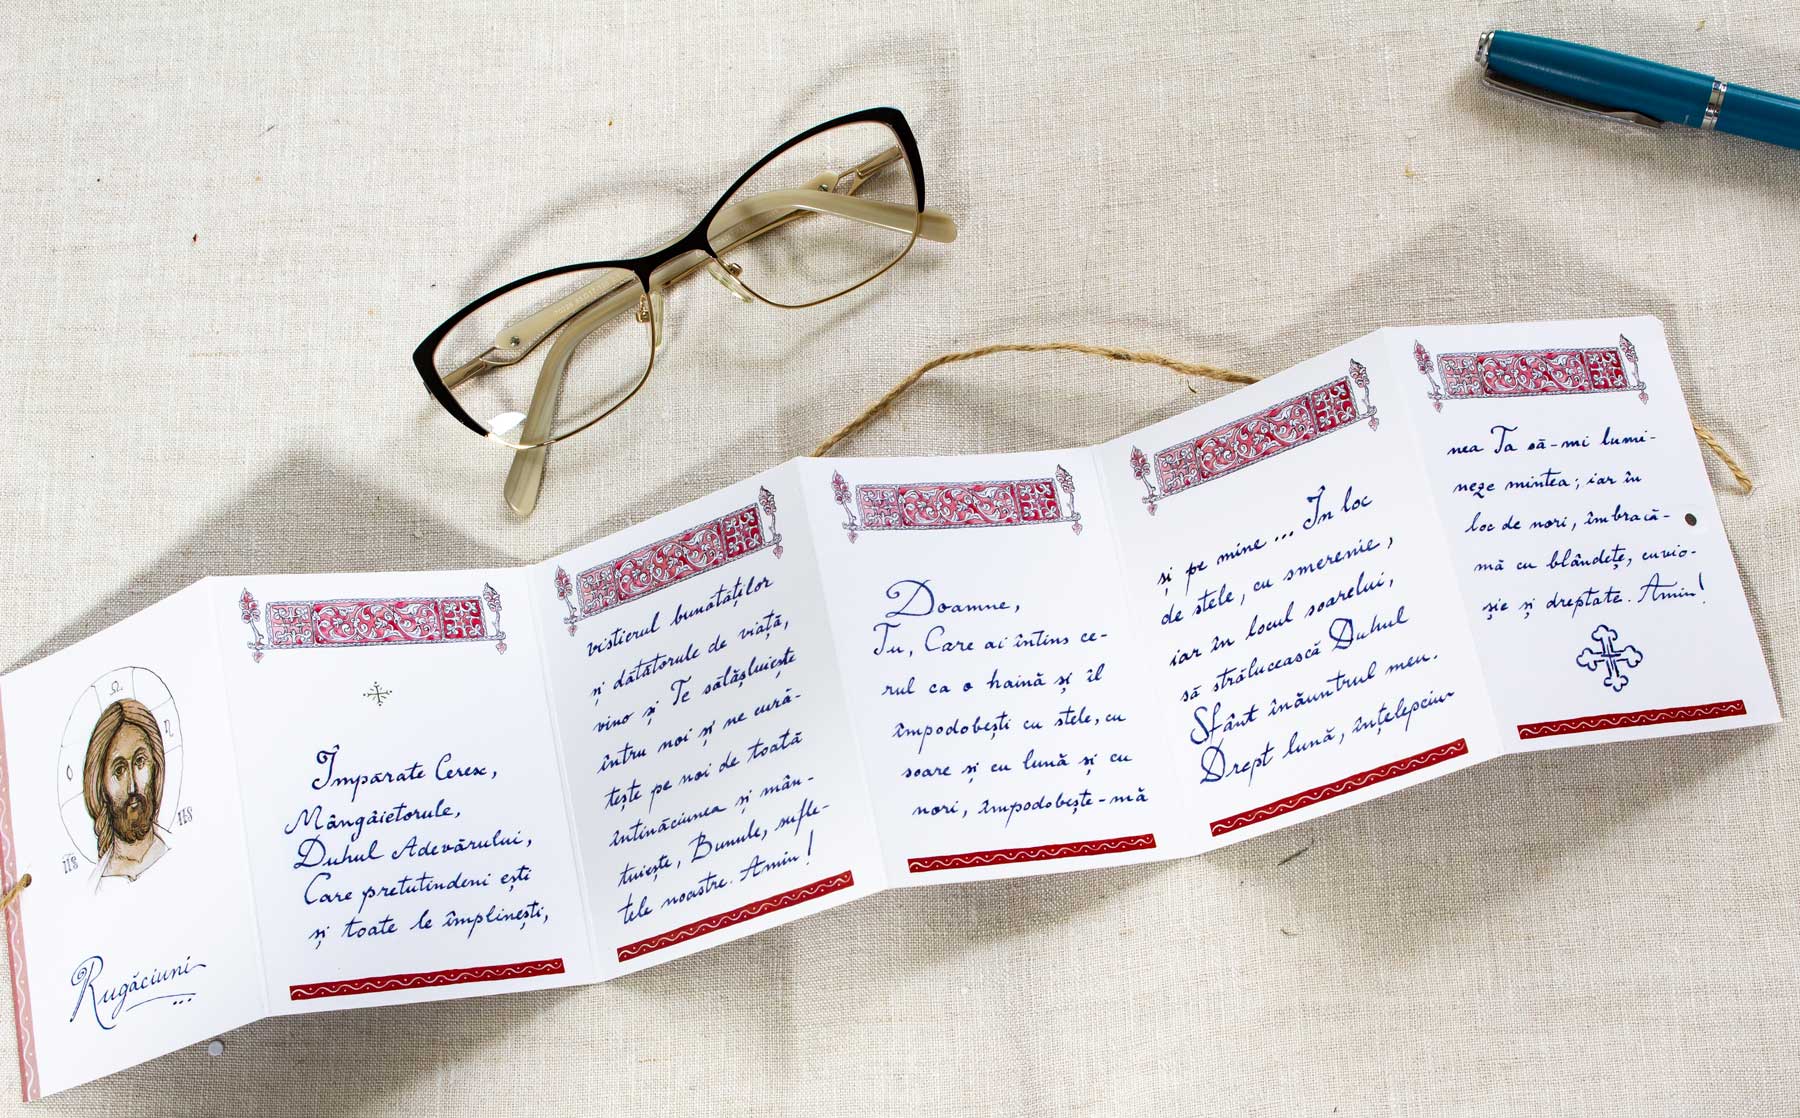 Ω
O
N
IIS
IIS
Rugăciuni
...
Împărate Ceresc,
Mângâietorule,
Duhul Adevărului,
Care pretutindeni ești
și toate le împlinești,
vistierul bunătăților
și dătătorule de viață,
vino și Te sălășluiește
întru noi și ne cură-
tește pe noi de toată
întinăciunea și mân-
tuiește, Bunule, sufle-
tele noastre. Amin!
Doamne,
Tu, Care ai întins ce-
rul ca o haină și îl
împodobești cu stele, cu
soare și cu lună și cu
nori, împodobește-mă
și pe mine... În loc
de stele, cu smerenie,
iar în locul soarelui,
să strălucească Duhul
Sfânt înăuntrul meu.
Drept lună, înțelepciu-
nea Ta să-mi lumi-
neze mintea; iar în
loc de nori, îmbracă-
mă cu blândețe, cuvio-
șie și dreptate. Amin!